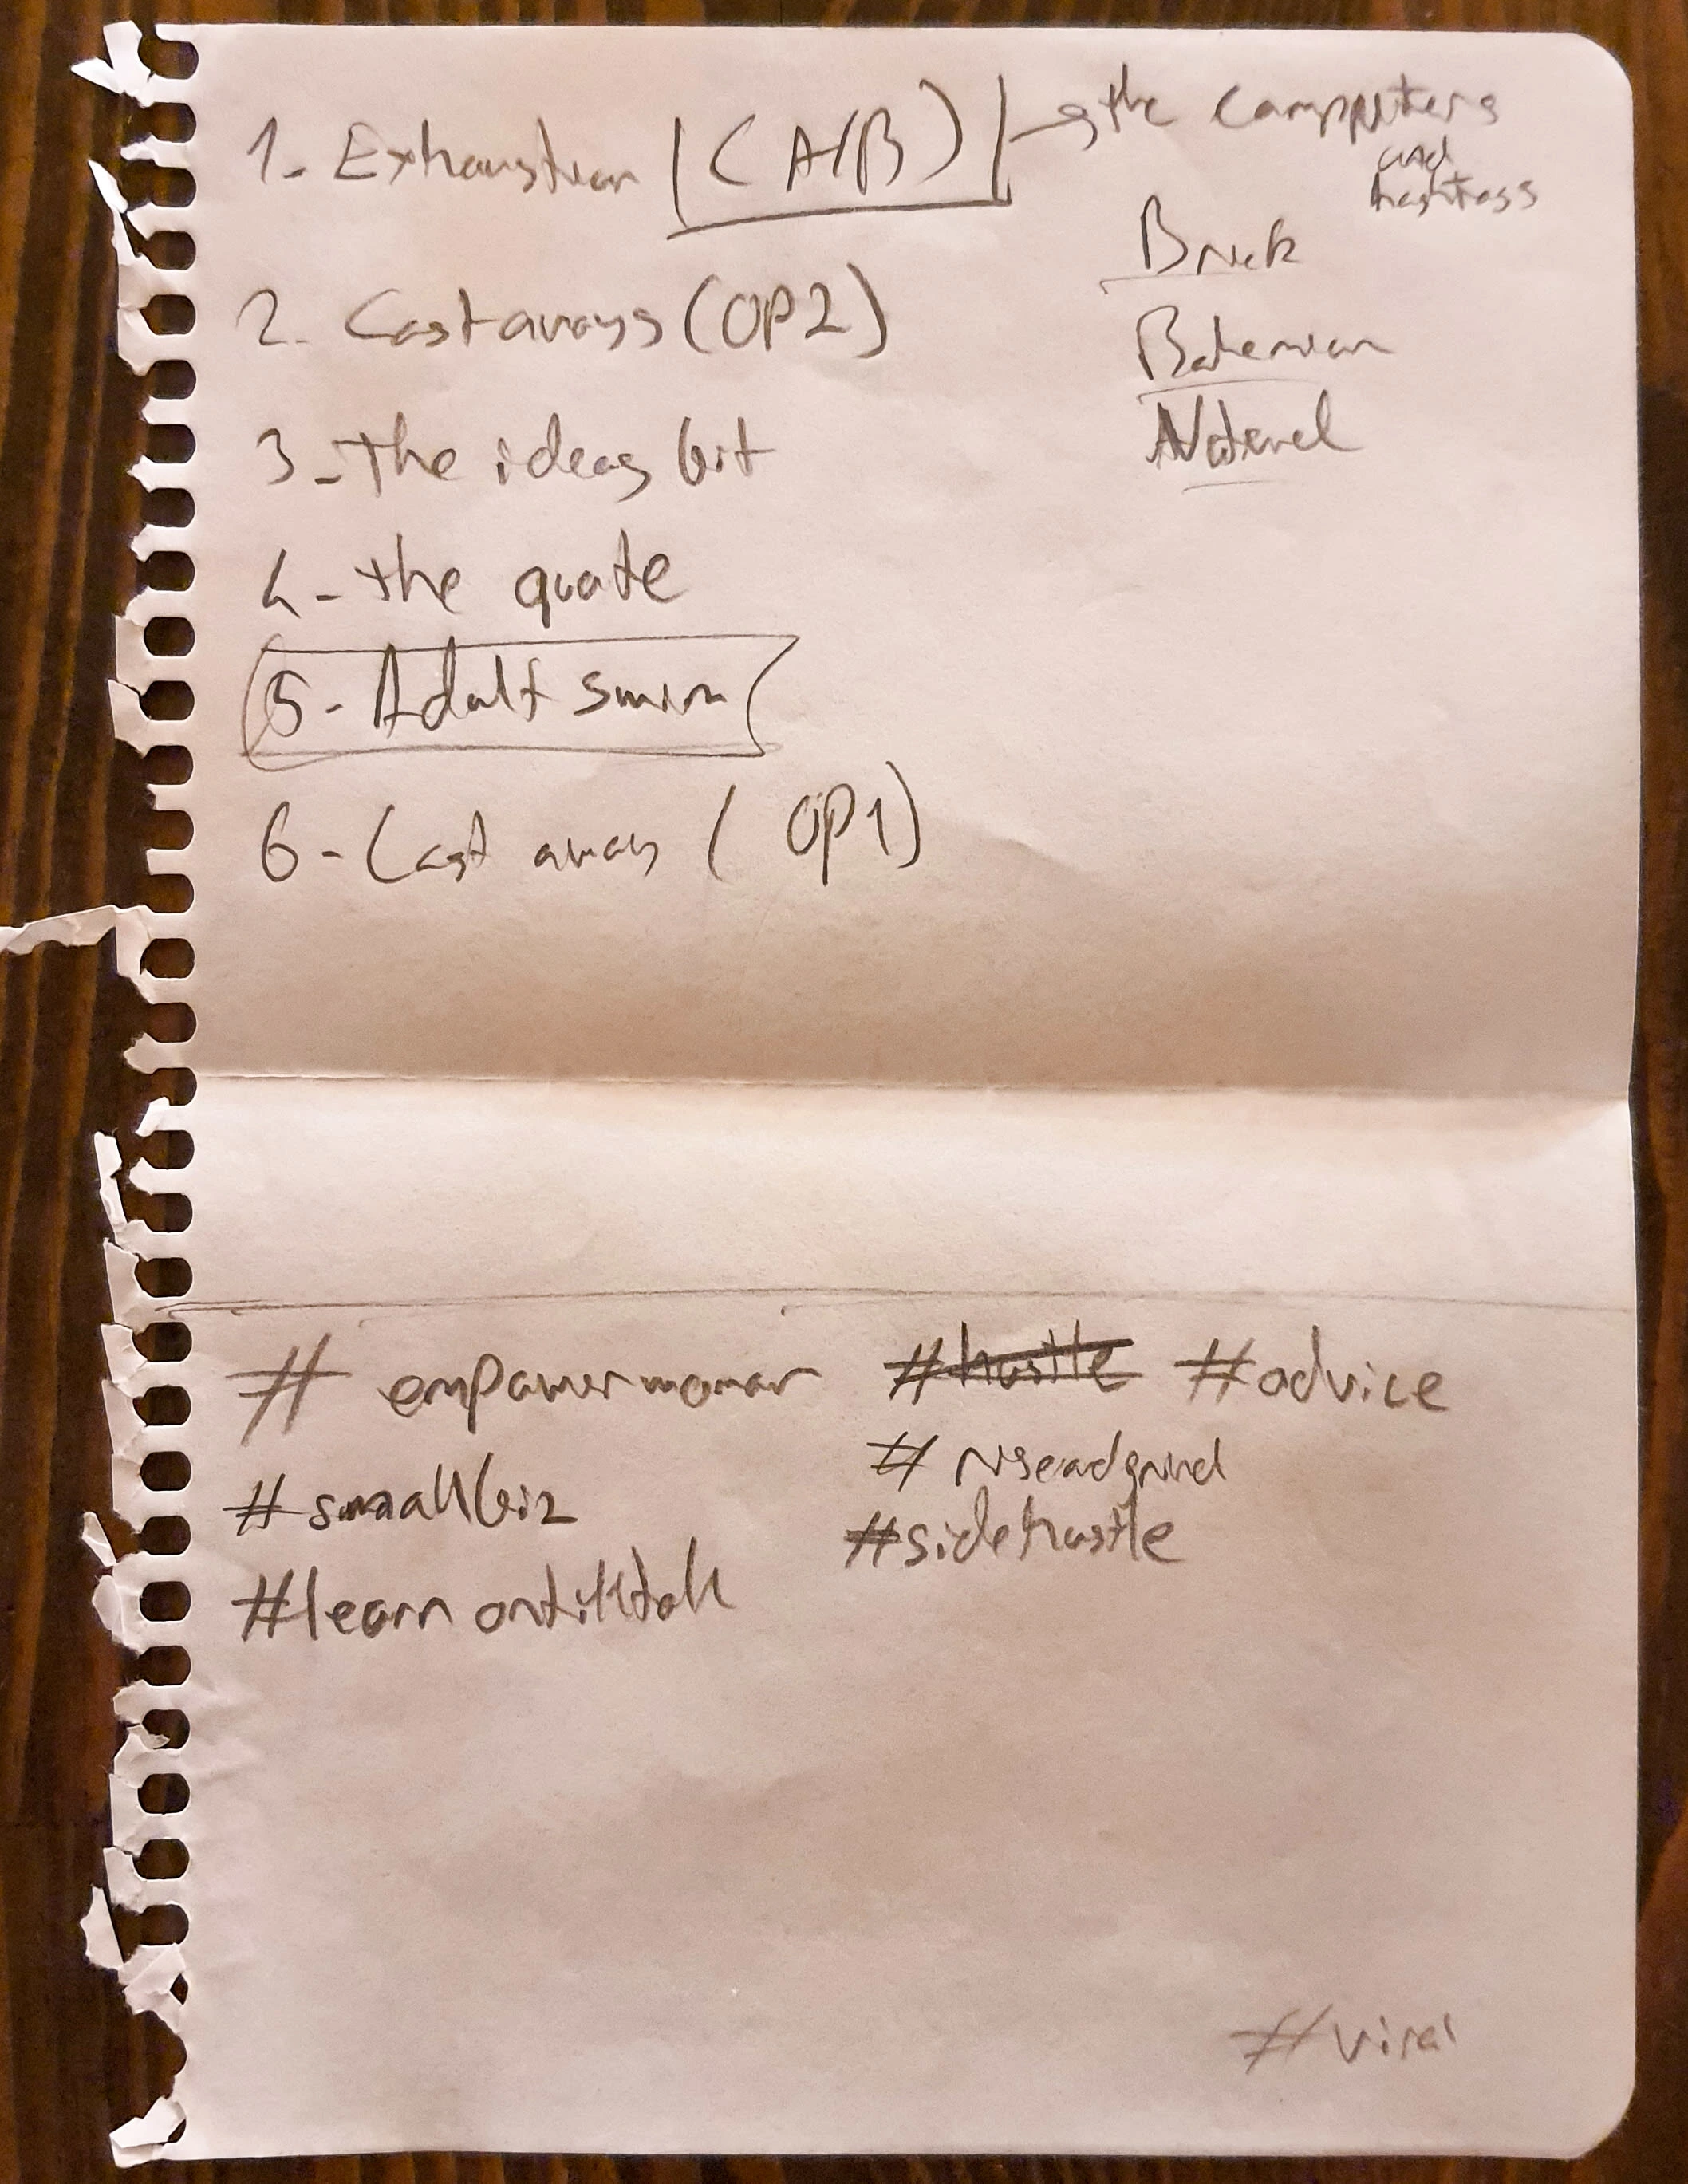 1- Exhaustion (A/B) → the computers
and
hashtags
Brick
2- Castaways (OP2)
Bohemian
3- The ideas bit
Natural
4- the quote
5- Adult swim
6- Cast away (OP1)
# empowerwoman #hustle #advice
# riseadgrind
#smallbiz
#sidehustle
#learnontiktok
#viral